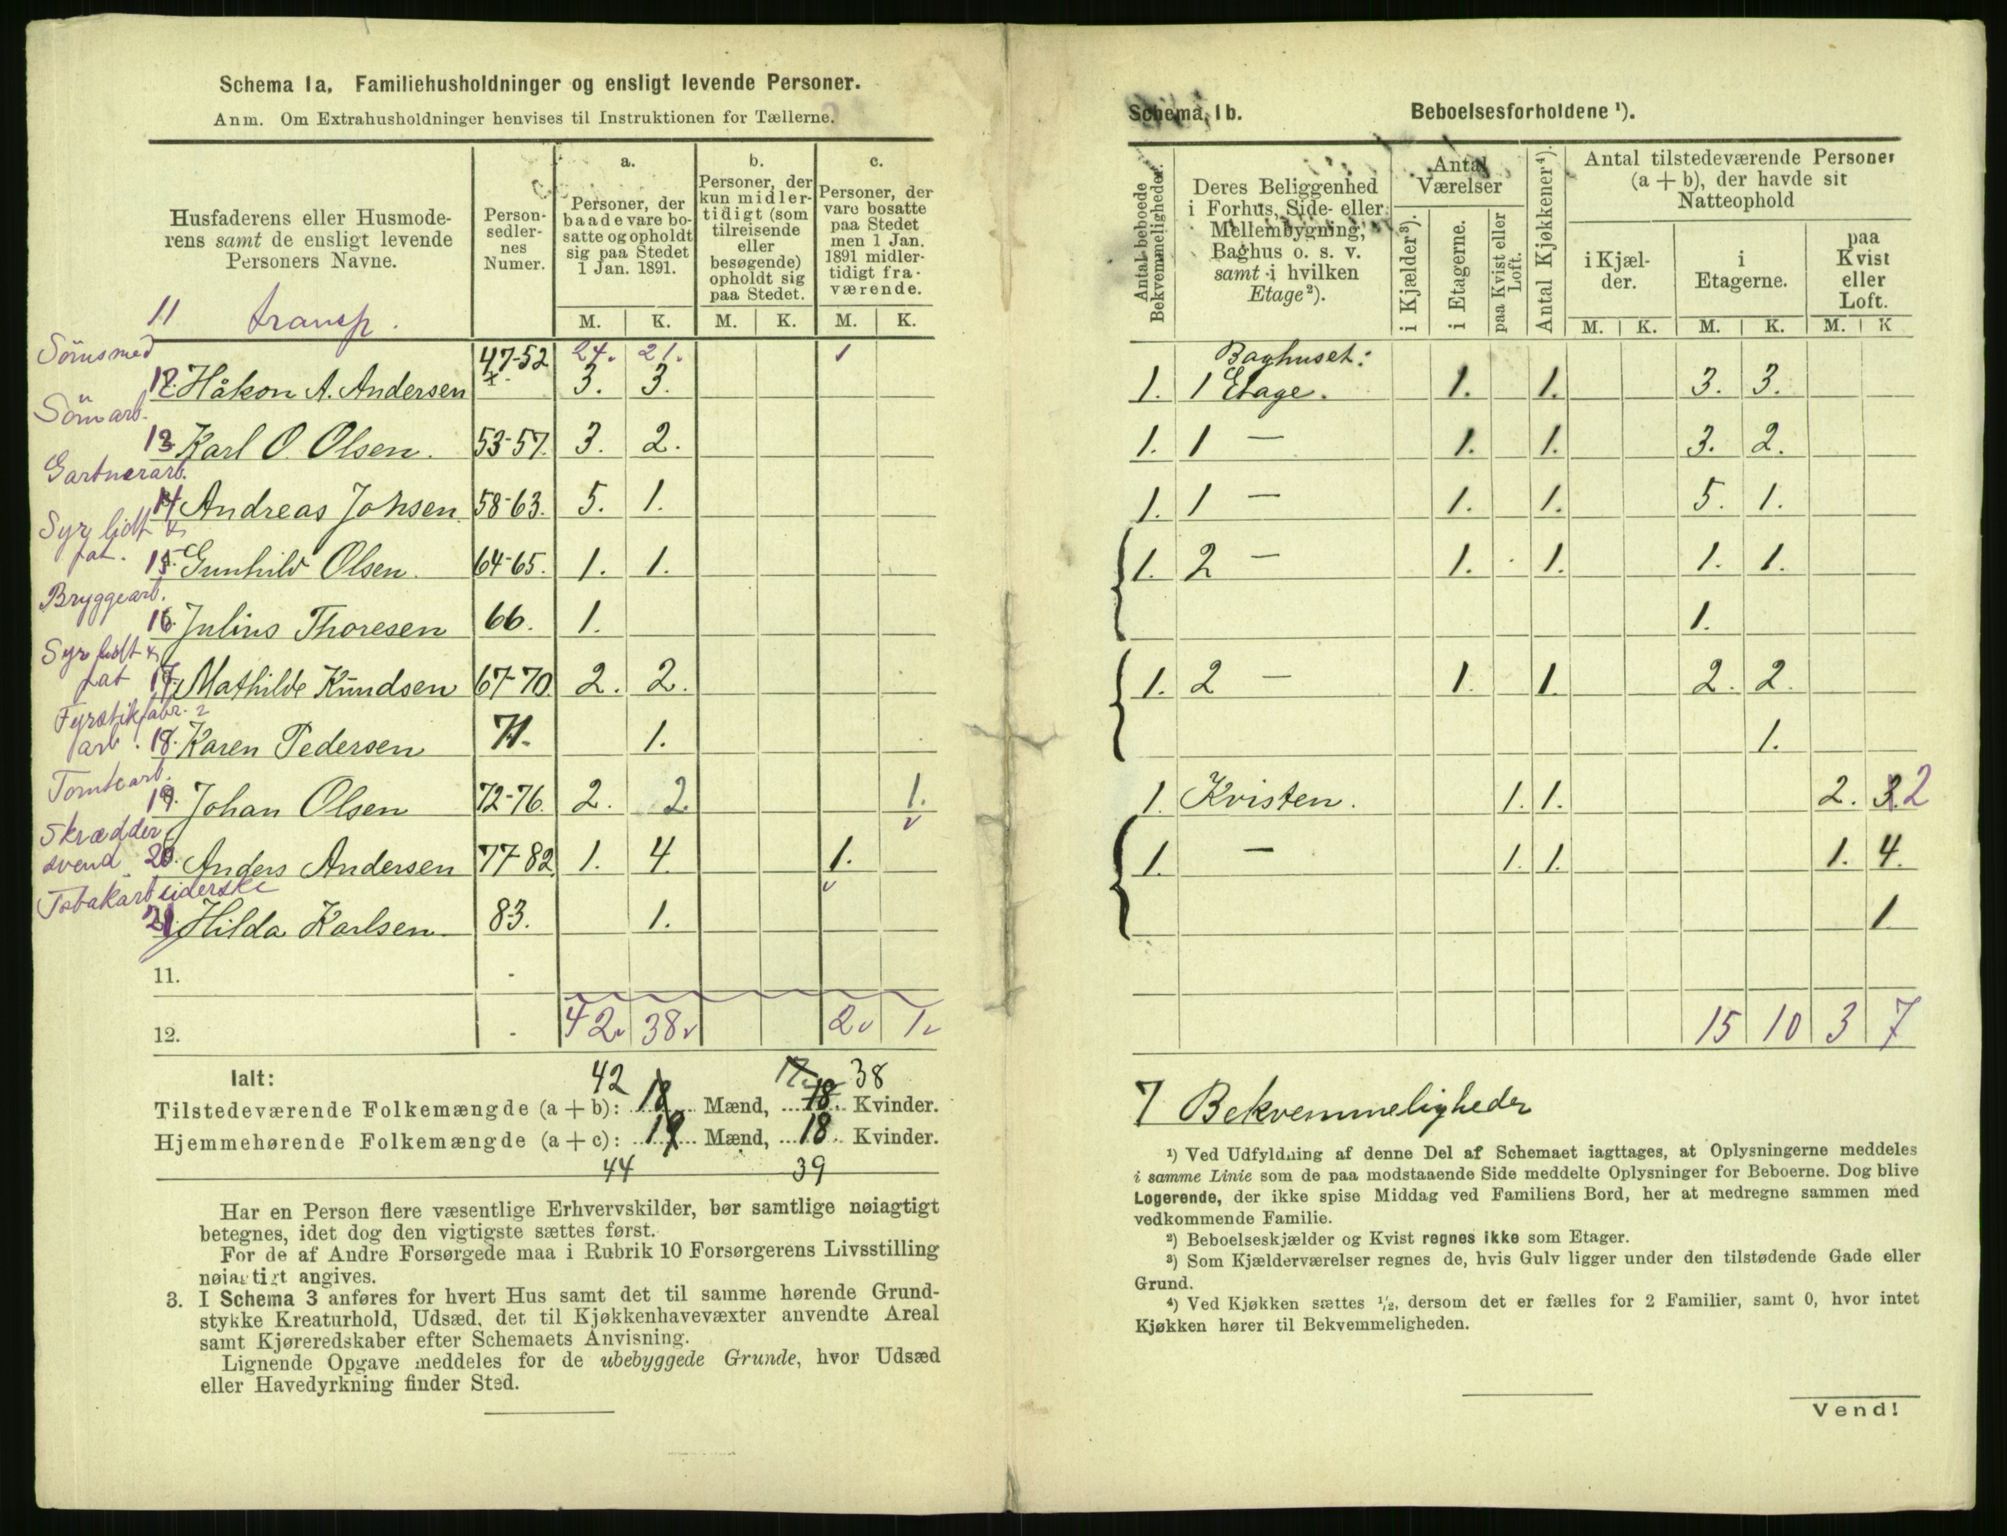 Schema 1a. Familiehusholdninger og ensligt levende Personer.
Anm. Om Extrahusholdninger henvises til Instruktionen for Tællerne.
Husfaderens eller Husmoderens samt de ensligt levende Personers Navne.
Personsedlernes Numer.
a. Personer, der baade vare bosatte og opholdt sig paa Stedet 1 Jan. 1891.
b. Personer, der kun midlertidigt (som tilreisende eller besøgende) opholdt sig paa Stedet.
c. Personer, der vare bosatte paa Stedet men 1 Jan. 1891 midlertidigt fraværende.
M. K. M. K. M. K.
11 transp. 24. 21. 1
Sömsmed
12. Håkon A. Andersen 47-52 x. 3. 3.
Sömarb.
13 Karl O. Olsen. 53-57. 3. 2.
Gartnerarb.
14 Andreas Johsen. 58-63. 5. 1.
Syr lidt &
fat. 15. Gunhild Olsen. 64-65. 1. 1.
Bryggearb.
16. Julius Thoresen 66. 1.
Syr lidt &
fat 17. Mathilde Knudsen 67-70. 2. 2.
Fyrstikfabr.
arb. 18. Karen Pedersen 71. 1.
Tomtearb.
19. Johan Olsen 72-76. 2. 2. 1. v
Skrædder
svend. 20. Anders Andersen 77-82 1. 4. 1. v
Tobakarbeiderske
21. Hilda Karlsen. 83. 1.
11.
12. 42v 38v 2v 1v
Ialt: 42 17 38
Tilstedeværende Folkemængde (a + b): 18 Mænd, 18 Kvinder.
Hjemmehørende Folkemængde (a + c): 19 Mænd, 18 Kvinder.
44 39
Har en Person flere væsentlige Erhvervskilder, bør samtlige nøiagtigt
betegnes, idet dog den vigtigste sættes først.
For de af Andre Forsørgede maa i Rubrik 10 Forsørgerens Livsstilling
nøiagtigt angives.
3. I Schema 3 anføres for hvert Hus samt det til samme hørende Grund-
stykke Kreaturhold, Udsæd, det til Kjøkkenhavevæxter anvendte Areal
samt Kjøreredskaber efter Schemaets Anvisning.
Lignende Opgave meddeles for de ubebyggede Grunde, hvor Udsæd
eller Havedyrkning finder Sted.
Schema 1b. Beboelsesforholdene ¹).
Antal beboede Bekvemmeligheder.
Deres Beliggenhed i Forhus, Side- eller Mellembygning, Baghus o. s. v. samt i hvilken Etage²).
Antal Værelser
i Kjælder³).
i Etagerne.
paa Kvist eller Loft.
Antal Kjøkkener⁴).
Antal tilstedeværende Personer (a + b), der havde sit Natteophold
i Kjælder. i Etagerne. paa Kvist eller Loft.
M. K. M. K. M. K
Baghuset:
1. 1 Etage. 1. 1. 3. 3.
1. 1 — 1. 1. 3. 2.
1. 1 — 1. 1. 5. 1.
1. 2 — 1. 1. 1. 1.
1.
1. 2 — 1. 1. 2. 2.
1.
1. Kvisten. 1. 1. 2. 3 2
1. — 1. 1. 1. 4.
1.
15 10 3 7
7 Bekvemmeligheder
¹) Ved Udfyldning af denne Del af Schemaet iagttages, at Oplysningerne meddeles
i samme Linie som de paa modstaaende Side meddelte Oplysninger for Beboerne. Dog blive
Logerende, der ikke spise Middag ved Familiens Bord, her at medregne sammen med
vedkommende Familie.
²) Beboelseskjælder og Kvist regnes ikke som Etager.
³) Som Kjælderværelser regnes de, hvis Gulv ligger under den tilstødende Gade eller
Grund.
⁴) Ved Kjøkken sættes ½, dersom det er fælles for 2 Familier, samt 0, hvor intet
Kjøkken hører til Bekvemmeligheden.
Vend!